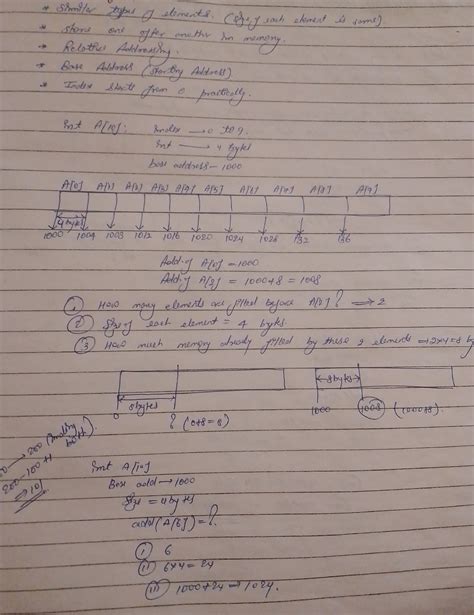 * Similar types of elements. (size of each element is same)
* store one after another in memory.
* Relative Addressing.
* Base Address (starting Address)
* Index starts from 0 practically.
int A[10]; index → 0 to 9.
int → 4 bytes
base address - 1000
A[0] A[1] A[2] A[3] A[4] A[5] A[6] A[7] A[8] A[9]
4 bytes
1000 1004 1008 1012 1016 1020 1024 1028 132 136
Add. of A[0] = 1000
Add. of A[2] = 1000+8 = 1008
① How many elements are filled before A[2]? → 2
② Size of each element = 4 bytes
③ How much memory already filled by these 2 elements → 2×4=8 by
8 bytes 8 bytes
0 ? (0+8=8) 1000 1008 (1000+8).
→ 200 (
200-100+1
→ 101
int A[10]
Base add → 1000
Size = 4 bytes
add(A[6]) = ?
① 6
② 6×4 = 24
③ 1000+24 → 1024.